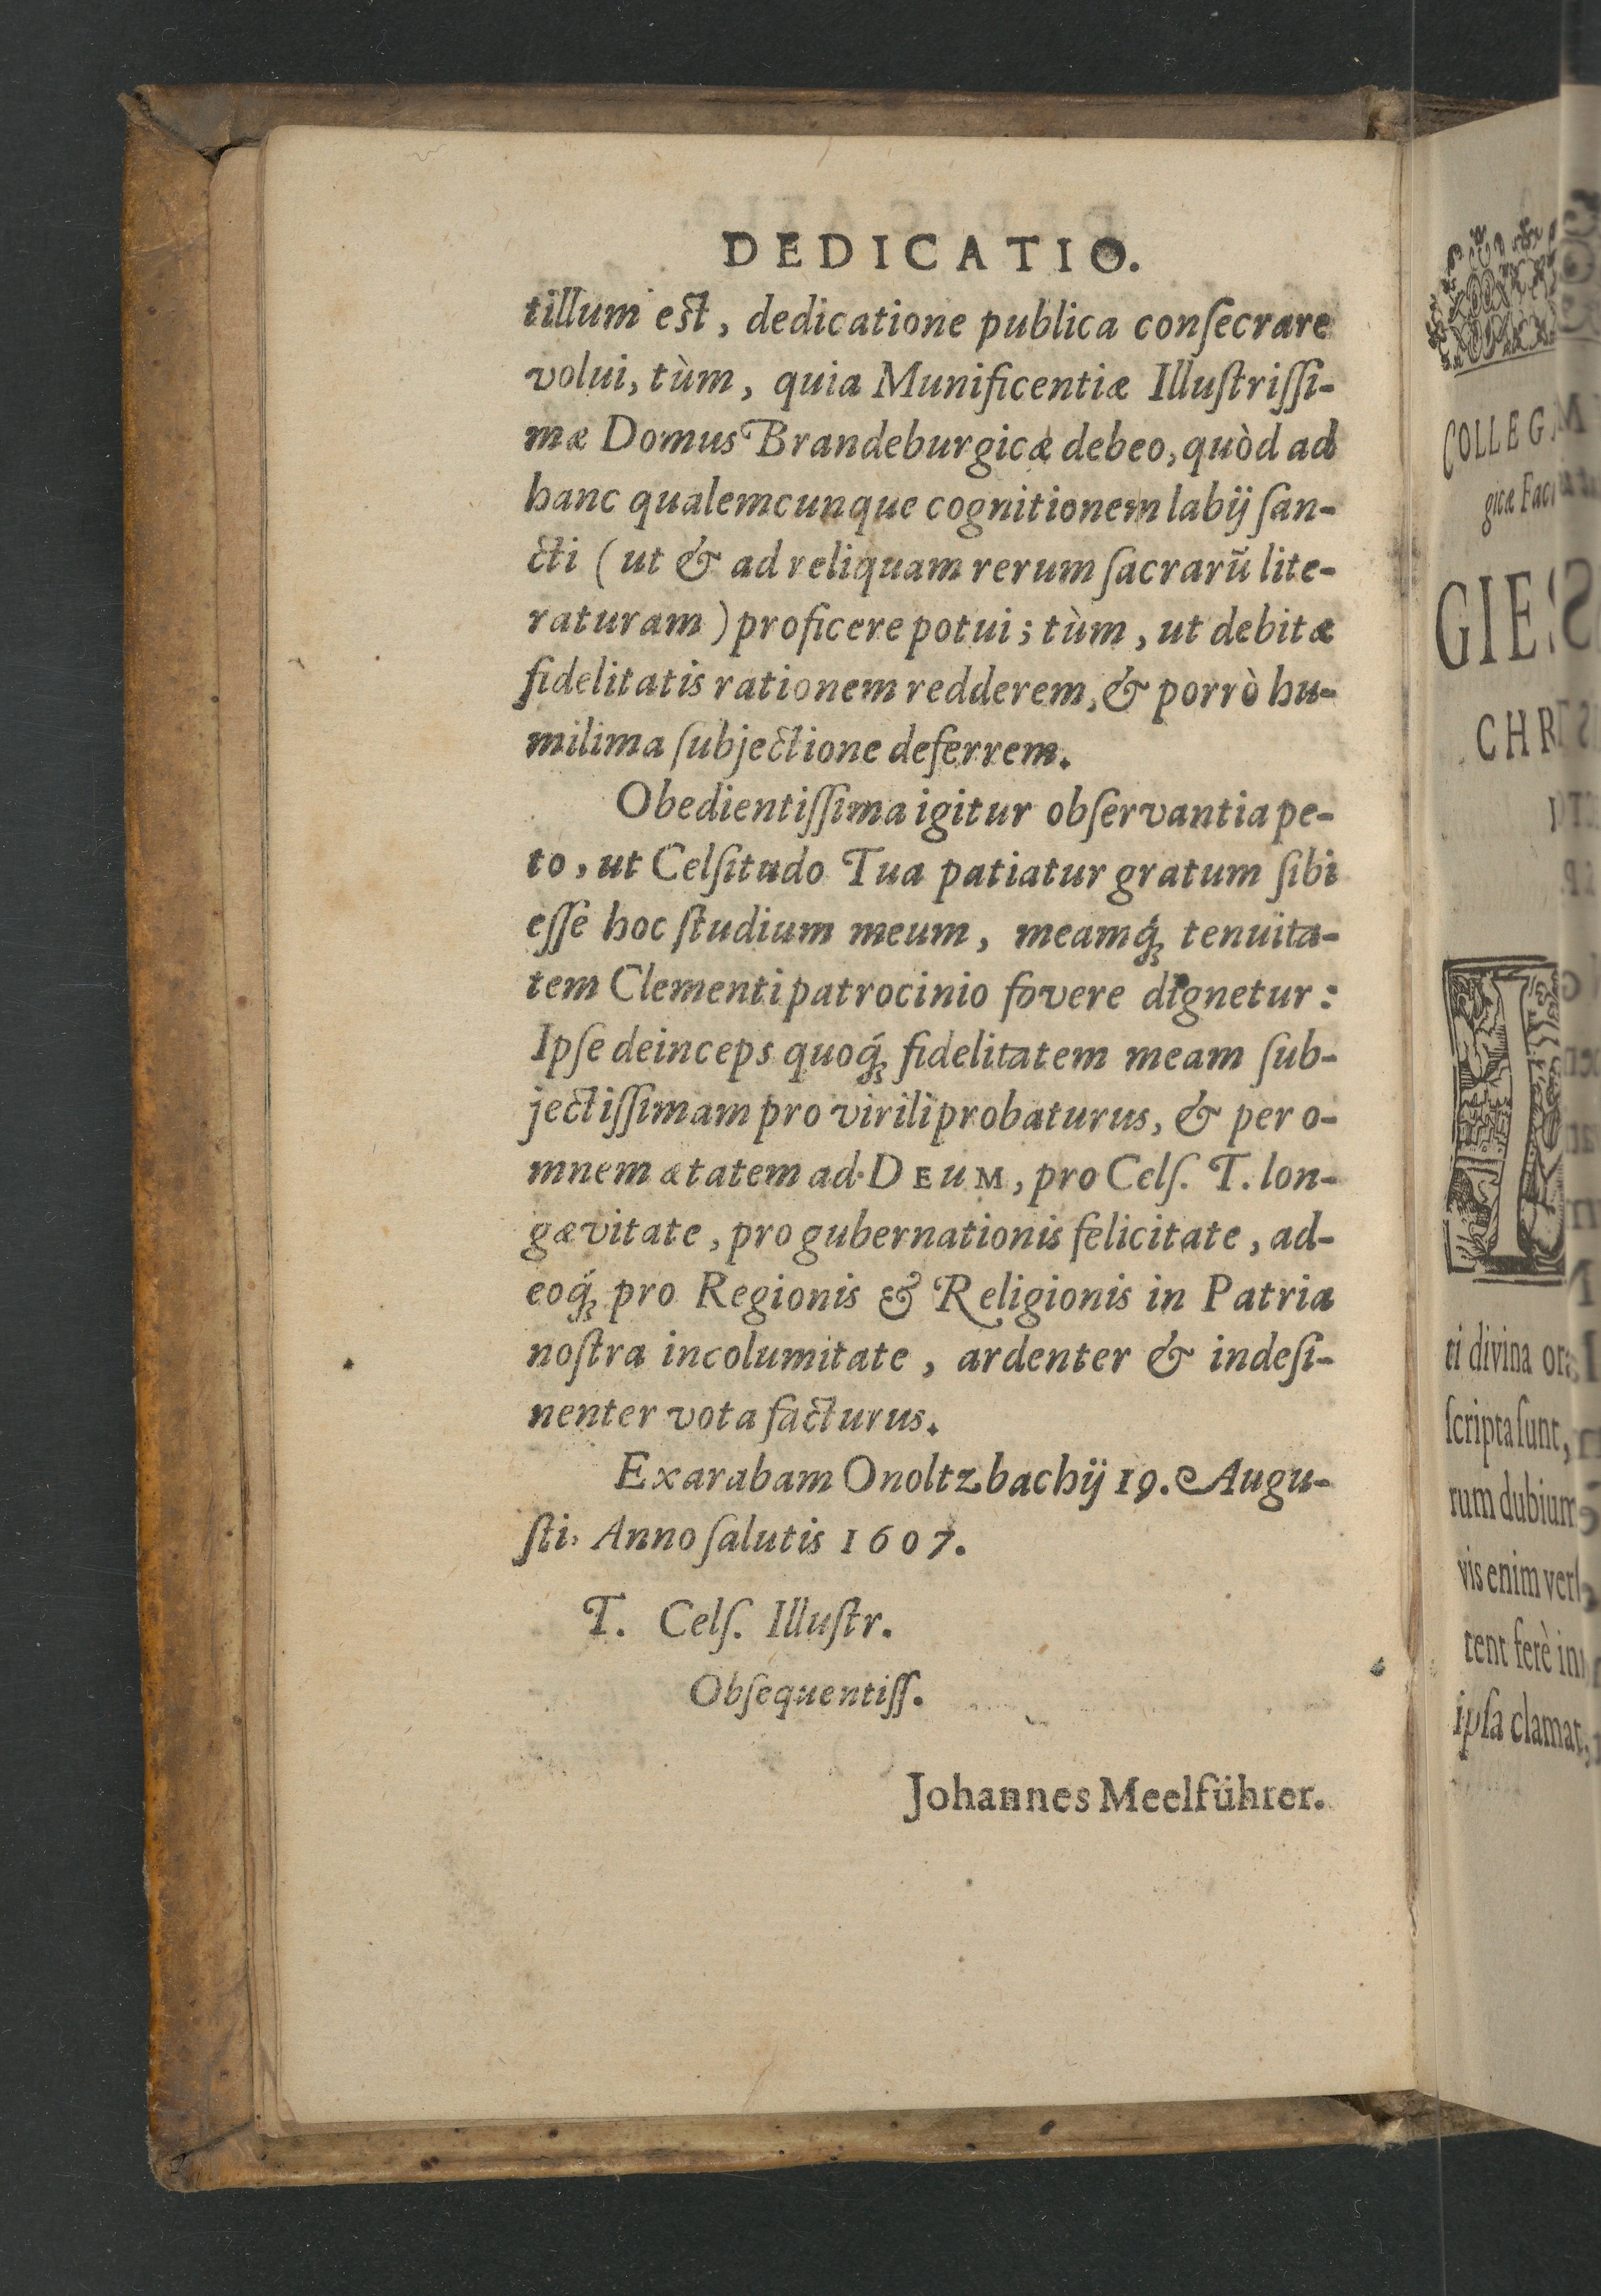 DEDICATIO.
tillum est, dedicatione publica conſecrare
volui, tùm, quia Munificentiæ Illuſtriſſi-
mæ Domus Brandeburgicæ debeo, quòd ad
hanc qualemcunque cognitionem labij ſan-
cti (ut & ad reliquam rerum ſacrarũ lite-
raturam) proficere potui; tùm, ut debitæ
fidelitatis rationem redderem, & porrò hu-
milima ſubjectione deferrem.
Obedientiſſima igitur obſervantia pe-
to, ut Celſitudo Tua patiatur gratum ſibi
eſſe hoc ſtudium meum, meamq́ꝫ tenuïta-
tem Clementi patrocinio fovere dignetur:
Ipſe deinceps quoq́ꝫ fidelitatem meam ſub-
jectiſſimam pro virili probaturus, & per o-
mnem ætatem ad DEUM, pro Celſ. T. lon-
gævitate, pro gubernationis felicitate, ad-
eoq́ꝫ pro Regionis & Religionis in Patria
noſtra incolumitate, ardenter & indeſi-
nenter vota facturus.
Exarabam Onoltzbachij 19. Augu-
ſti, Anno ſalutis 1607.
T. Celſ. Illuſtr.
Obſequentiſſ.
Johannes Meelführer.
COLLEG
gicæ
GIES
CHR
ti divina
ſcripta ſunt,
rum dubium
vis enim
tent ferè
ipſa clamat,